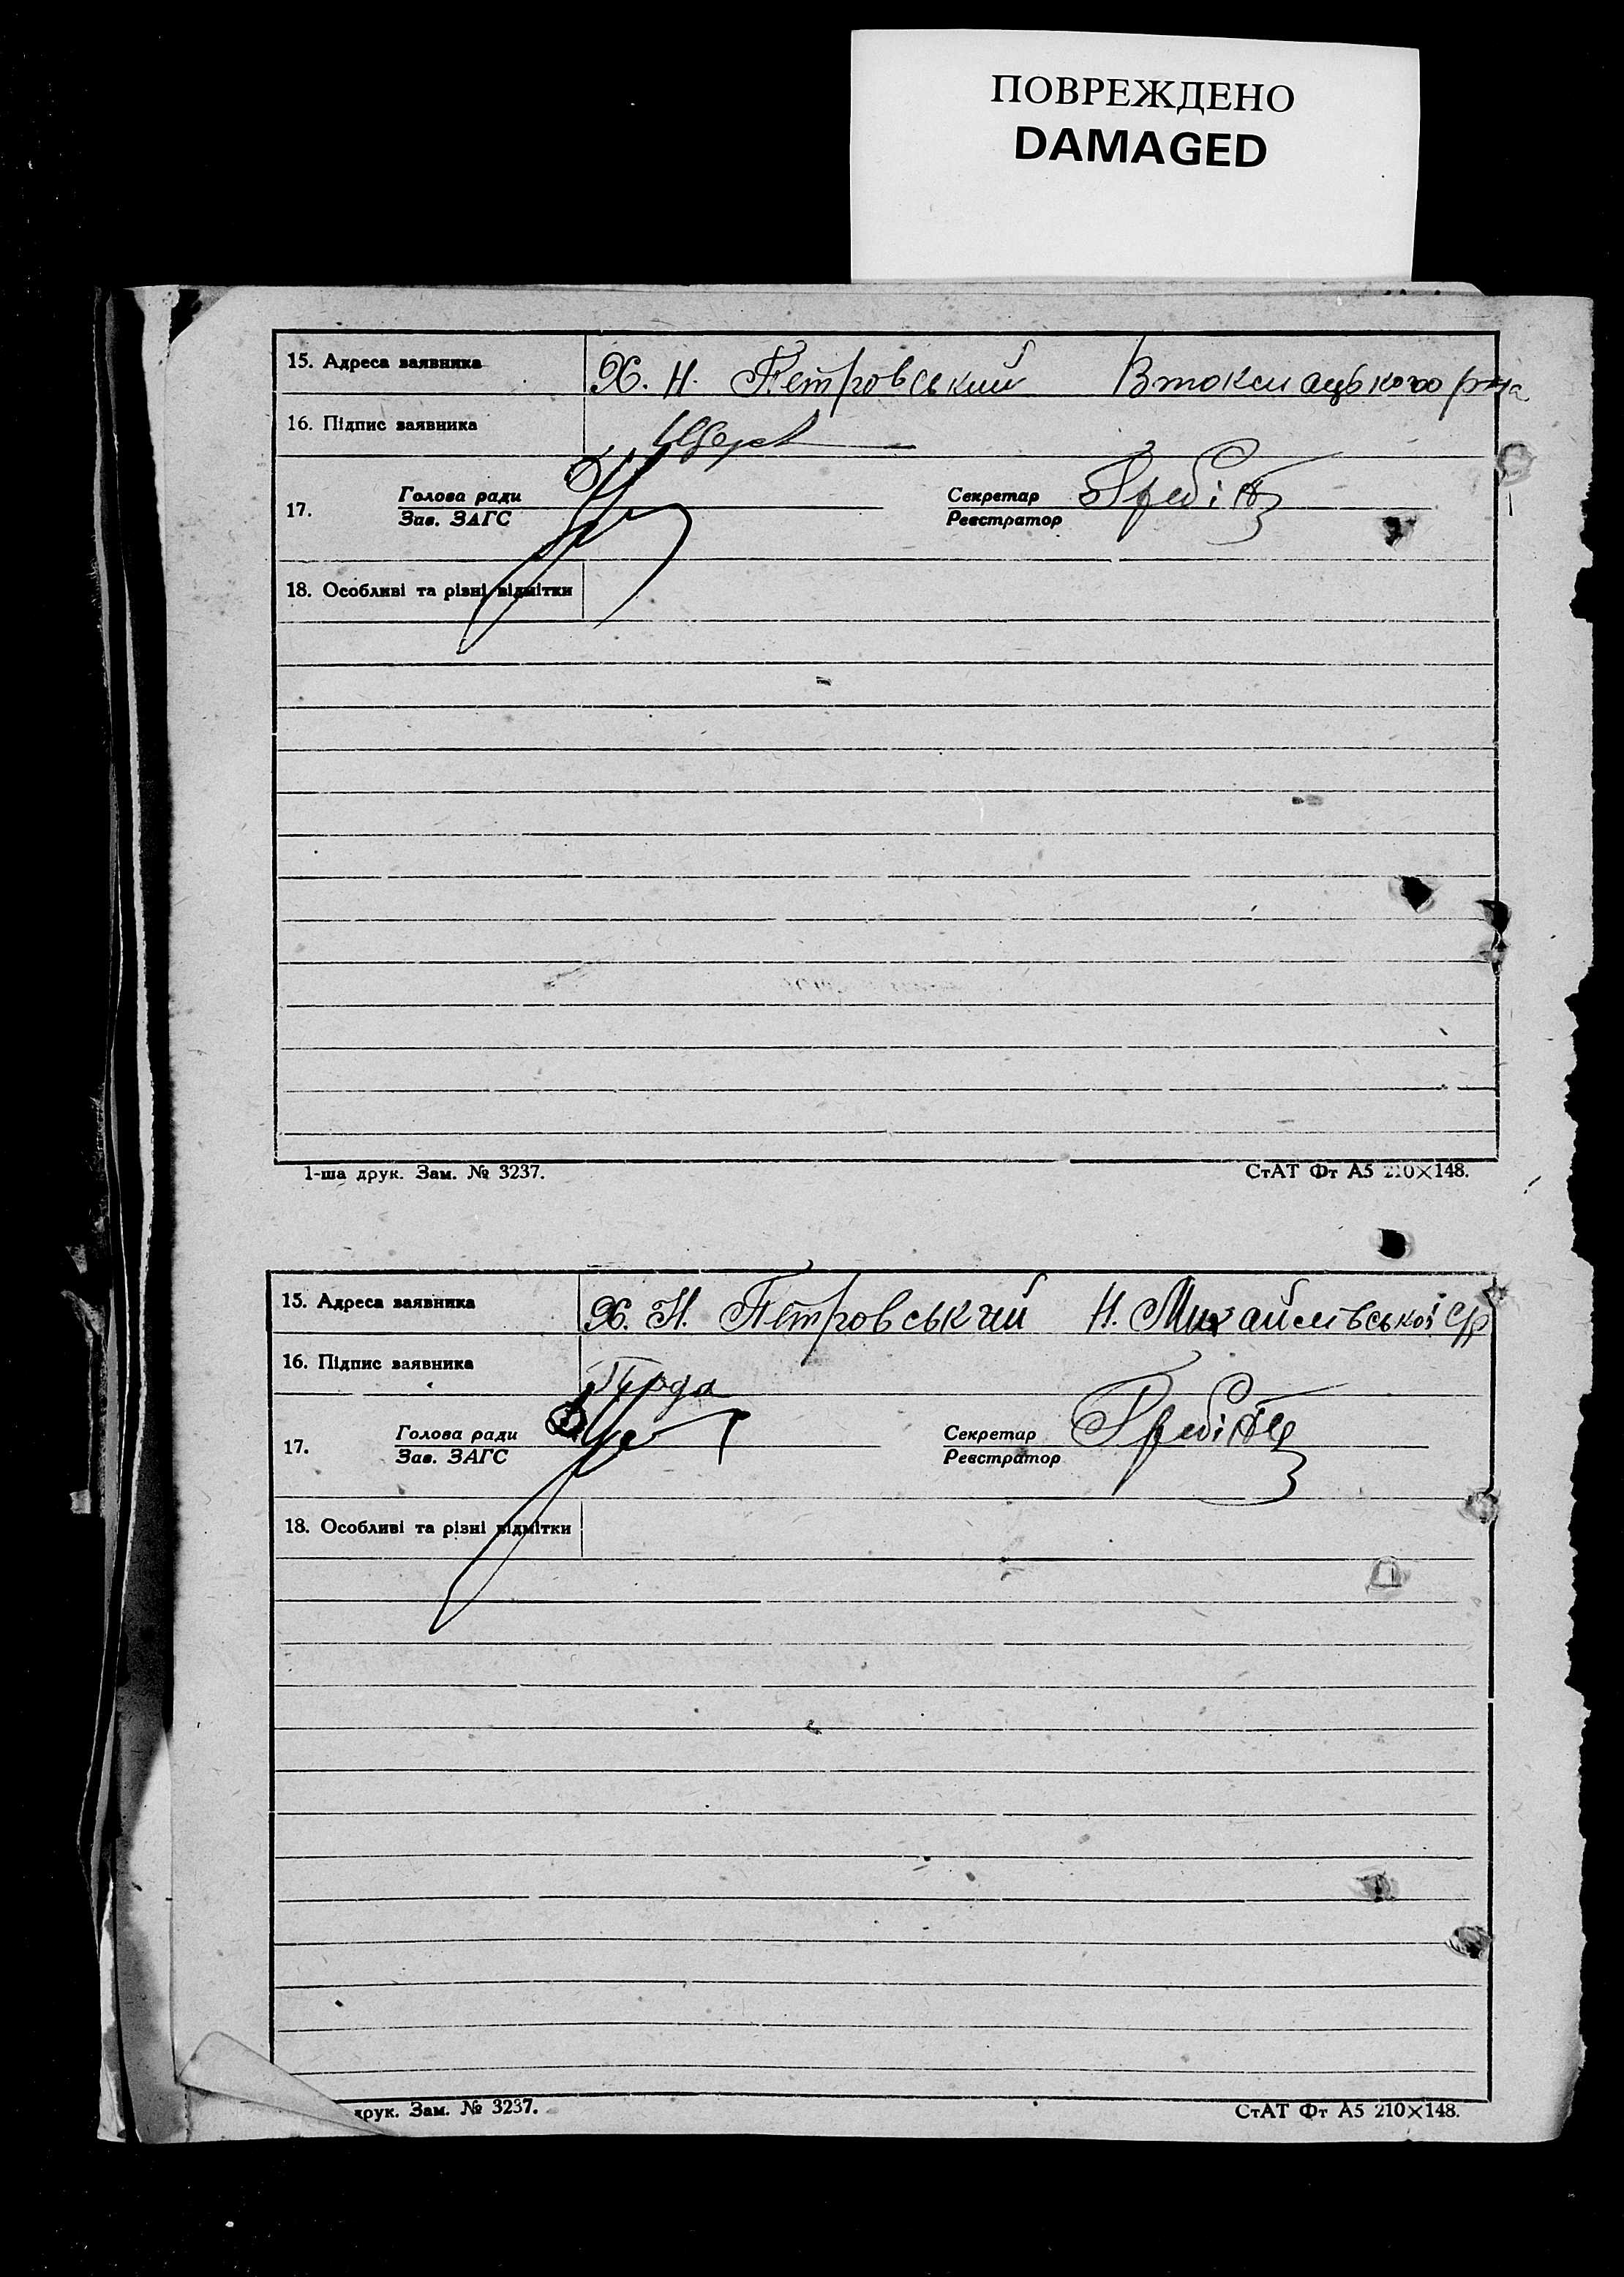 ПОВРЕЖДЕНО
DAMAGED
15. Адреса заявника Х. Н. Петровський Втокмацького р-на
16. Підпис заявника
17. Голова ради Секретар
Зав. ЗАГС Реєстратор
18. Особливі та різні відмітки
1-ша друк. Зам. № 3237. СтАТ Фт А5 210×148.
15. Адреса заявника Х. Н. Петровський Н. Михайлівської с/р
16. Підпис заявника
17. Голова ради Секретар
Зав. ЗАГС Реєстратор
18. Особливі та різні відмітки
друк. Зам. № 3237. СтАТ Фт А5 210×148.